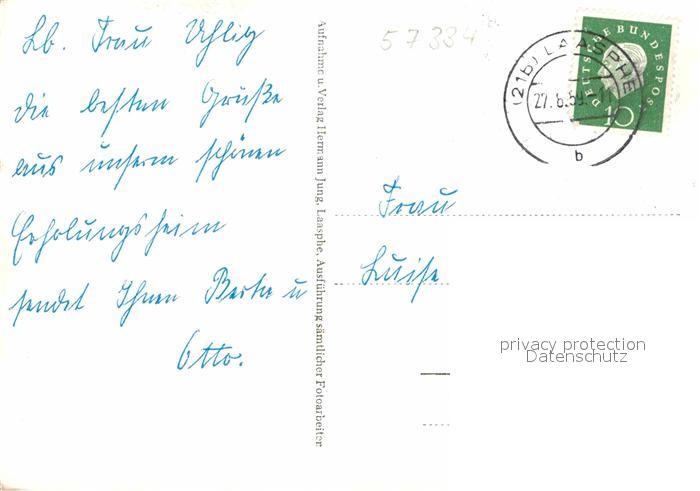 Lb. Frau Uhlig
die besten Grüße
aus unserm schönen
Erholungsheim
sendet Ihnen Berta u
Otto.
Aufnahme u. Verlag Hermann Jung, Laasphe, Ausführung sämtlicher Fotoarbeiter
57334
(21b) LAASPHE
27.8.59.-11
b
DEUTSCHE BUNDESPOST
10
Frau
Luise
privacy protection
Datenschutz